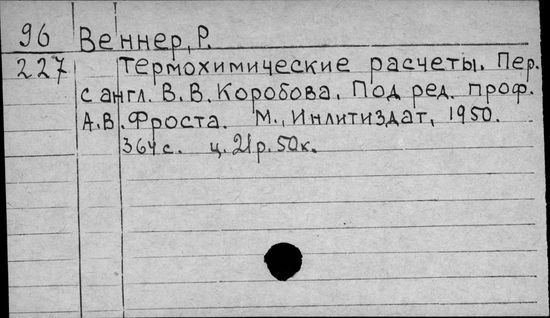 96 Веннер, Р.
227 Термохимические расчеты. Пер.
с англ. В.В. Коробова. Под ред. проф.
А.В. Фроста. М., Инлитиздат, 1950.
364 с. ц. 21 р. 50 к.